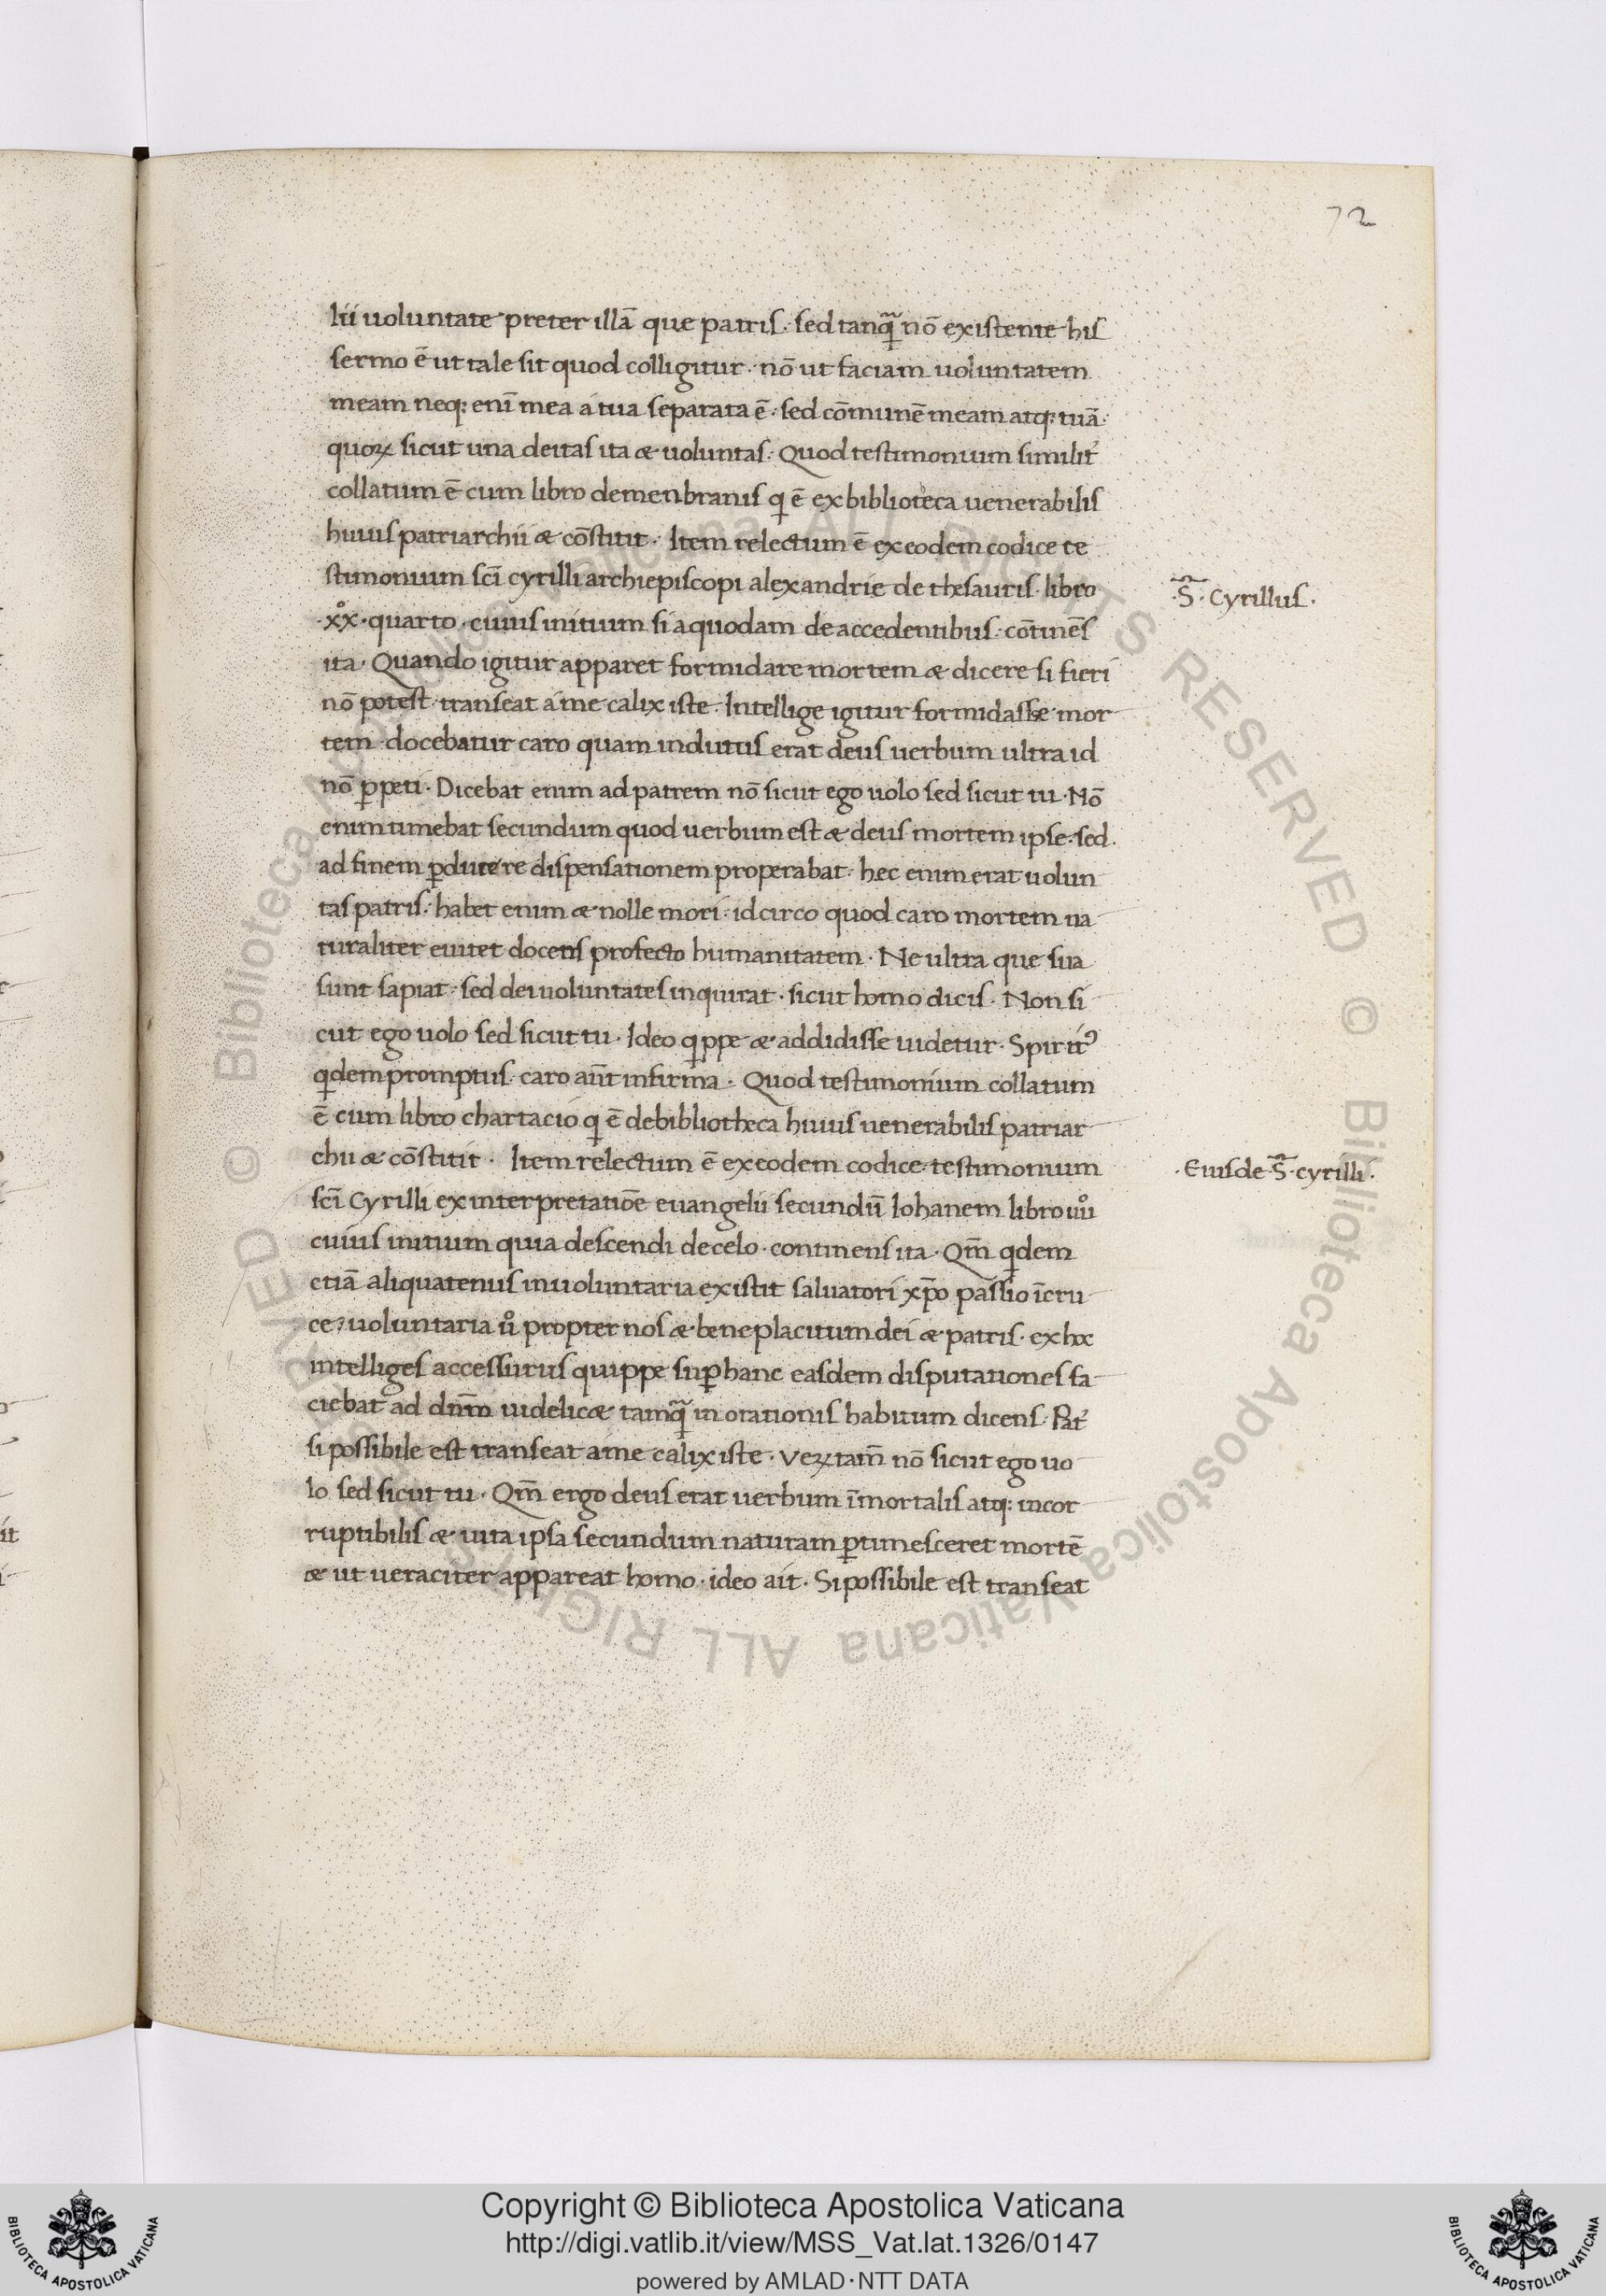 72
lii uoluntate preter illā que patris. sed tanq̄ nō existente his
sermo ē ut tale sit quod colligitur. nō ut faciam uoluntatem
meam neq; enī mea a tua separata ē. sed cōmunē meam atq; tuā.
quoꝝ sicut una deitas ita æ uoluntas. Quod testimonium similit̄
collatum ē cum libro demenbranis q̇ ē ex biblioteca uenerabilis
huius patriarchii æ cōstitit. Item relectum ē ex eodem codice te
stimonium scī cyrilli archiepiscopi alexandrie de thesauris. libro
·S̄· Cyrillus.
·xx̊· quarto. cuius initium si aquodam de accedentibus. cōtinēs
ita. Quando igitur apparet formidare mortem æ dicere si fieri
nō potest transeat á me calix iste. Intellige igitur formidasse mor
tem docebatur caro quam indutus erat deus uerbum ultra id
nō ꝑpeti. Dicebat enim ad patrem nō sicut ego uolo sed sicut tu. Nō
enim timebat secundum quod uerbum est æ deus mortem ipse. sed
ad finem ꝑducere dispensationem properabat. hec enim erat uolun
tas patris. habet enim æ nolle mori. idcirco quod caro mortem na
turaliter euitet docens profecto humanitatem. Ne ultra que sua
sunt sapiat. sed dei uoluntates inquirat. sicut homo dicis. Non si
cut ego uolo sed sicut tu. Ideo q̇ppe æ addidisse uidetur. Spiritꝰ
q̇dem promptus. caro aūt infirma. Quod testimonium collatum
ē cum libro chartacio q̇ ē debibliotheca huius uenerabilis patriar
chii æ cōstitit. Item relectum ē ex eodem codice testimonium
·Eiusde S̄· cyrilli.
scī Cyrilli ex interpretatiōe euangelii secundū Iohanem libro iiii̊
cuius initium quia descendi decelo. continens ita. Qm̄ q̇dem
etiā aliquatenus inuoluntaria existit saluatori xp̄o passio īcru
ce, uoluntaria ů propter nos æ beneplacitum dei æ patris. ex hoc
intelliges accessurus quippe suꝑ hanc easdem disputationes fa
ciebat ad dnm̄ uidelicæ tamq̄ in orationis habitum dicens. Pat̄
si possibile est transeat a me calix iste. Veꝝtam̄ nō sicut ego uo
lo sed sicut tu. Qm̄ ergo deus erat uerbum īmortalis atq; incor
ruptibilis æ uita ipsa secundum naturam ꝑtimesceret mortē
æ ut ueraciter appareat homo. ideo ait. Si possibile est transeat
Copyright © Biblioteca Apostolica Vaticana
http://digi.vatlib.it/view/MSS_Vat.lat.1326/0147
powered by AMLAD·NTT DATA